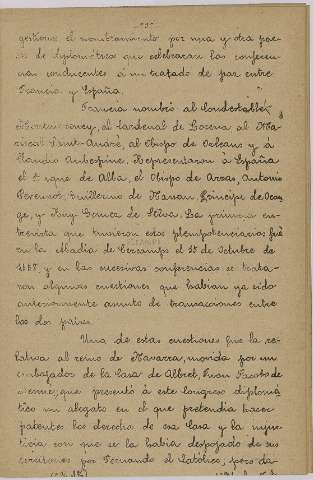 gestionar el nombramiento por una y otra par-
te de diplomáticos que celebraran las conferen-
cias conducentes á un tratado de paz entre
Francia y España.
Francia nombró al Condestable
Montmorency, al Cardenal de Lorena al Ma-
riscal Saint-André, al Obispo de Orleans y á
Claudio Aubespine. Representaron a España
el Duque de Alba, el Obispo de Arras, Antonio
Perenot, Guillermo de Nassau, Príncipe de Oran-
ge, y Ruy Gomez de Silva. La primera en-
trevista que tuvieron estos plenipotenciarios fué
en la Abadia de Cercamps el 15 de Octubre de
y en las sucesivas conferencias se trata-
ron algunas cuestiones que habian ya sido
anteriormente asunto de transacciones entre
los dos paises.
Una de estas cuestiones fue la re-
lativa al reino de Navarra, movida por un
embajador de la Casa de Albret, Juan Jacobo de
que presentó á este Congreso diplomá-
tico un alegato en el que pretendía hacer
patentes los derecho de esa Casa y la injus-
ticia con que se la habia despojado de sus
territorios por Fernando el Católico, pero da-